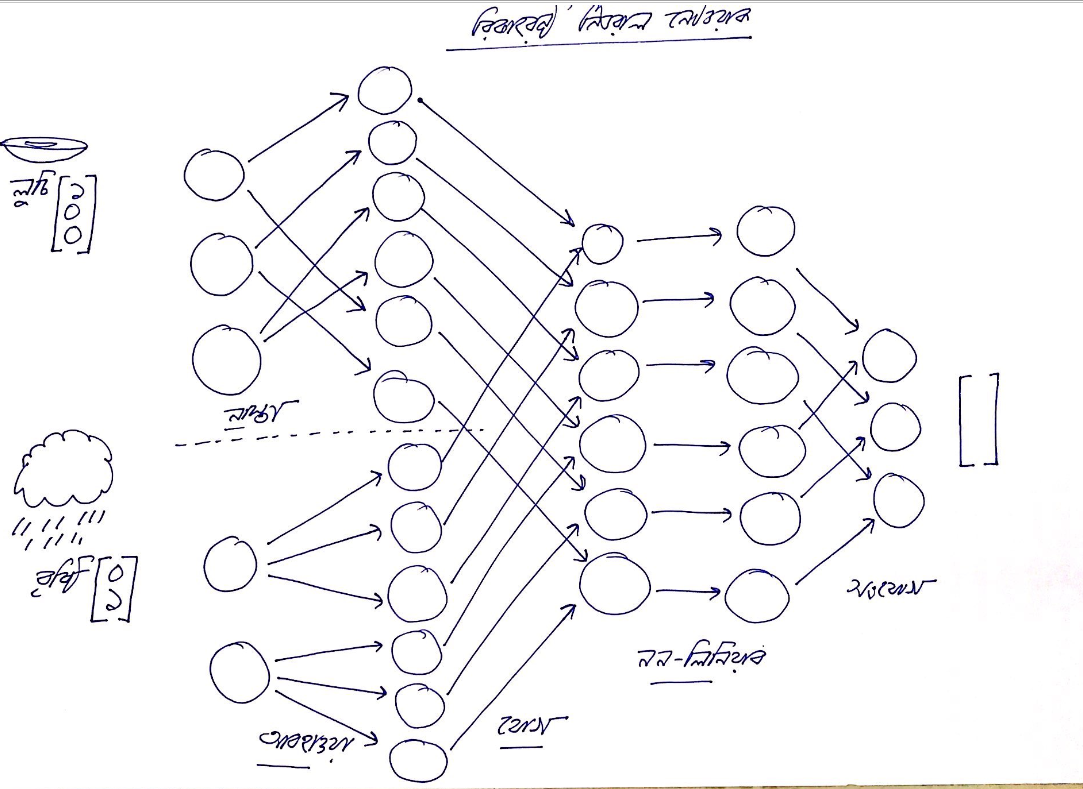 রিকারেন্ট নিউরাল নেটওয়ার্ক
লুচি
১
০
০
নাস্তা
বৃষ্টি
০
১
আবহাওয়া
যোগ
নন-লিনিয়ার
সংযোগ